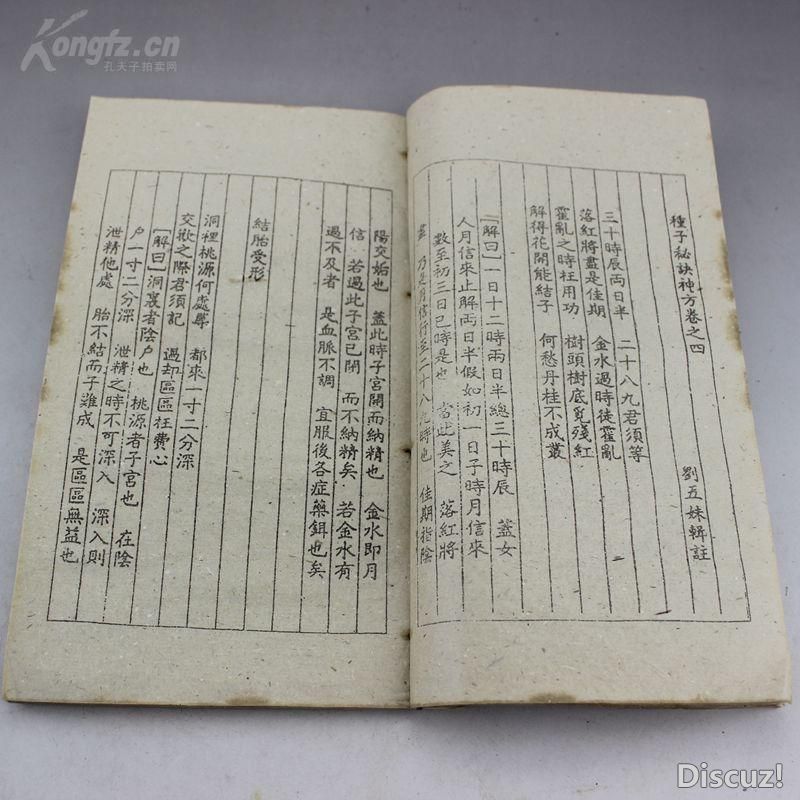 Kongfz.cn
孔夫子拍卖网
種子秘訣神方卷之四
劉五妹輯註
三十時辰両日半 二十八九君須等
落紅將盡是佳期 金水過時徒霍亂
霍亂之際枉用功 樹頭樹底覓殘紅
解得花開能結子 何愁丹桂不成叢
「解曰」一日十二時両日半總三十時辰 蓋女
人月信來止解両日半假如初一日子時月信來
數至初三日巳時是也 當此美之 落紅將
盡 乃是月信行至二十八九時也 佳期指陰
陽交姤也 蓋此時子宮開而納精也 金水即月
信 若過此子宮已閉 而不納精矣 若金水有
過不及者 是血脈不調 宜服後各症藥餌也矣
結胎受形
洞裡桃源何處尋 都來一寸二分深
交歡之際君須記 過却區區枉費心
「解曰」洞裏者陰户也 桃源者子宮也 在陰
户一寸二分深 泄精之時不可深入 深入則
泄精他處 胎不結而子難成 是區區無益也
Discuz!